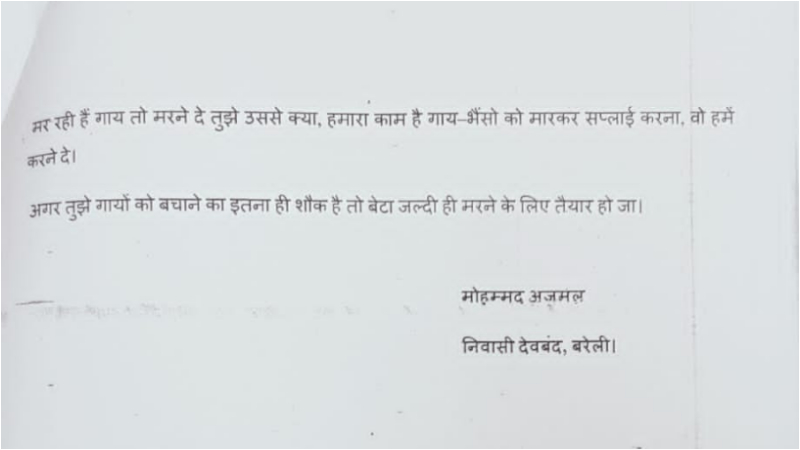 मर रही हैं गाय तो मरने दे तुझे उससे क्या, हमारा काम है गाय–भैंसो को मारकर सप्लाई करना, वो हमें
करने दे।
अगर तुझे गायों को बचाने का इतना ही शौक है तो बेटा जल्दी ही मरने के लिए तैयार हो जा।
मोहम्मद अजमल
निवासी देवबंद, बरेली।